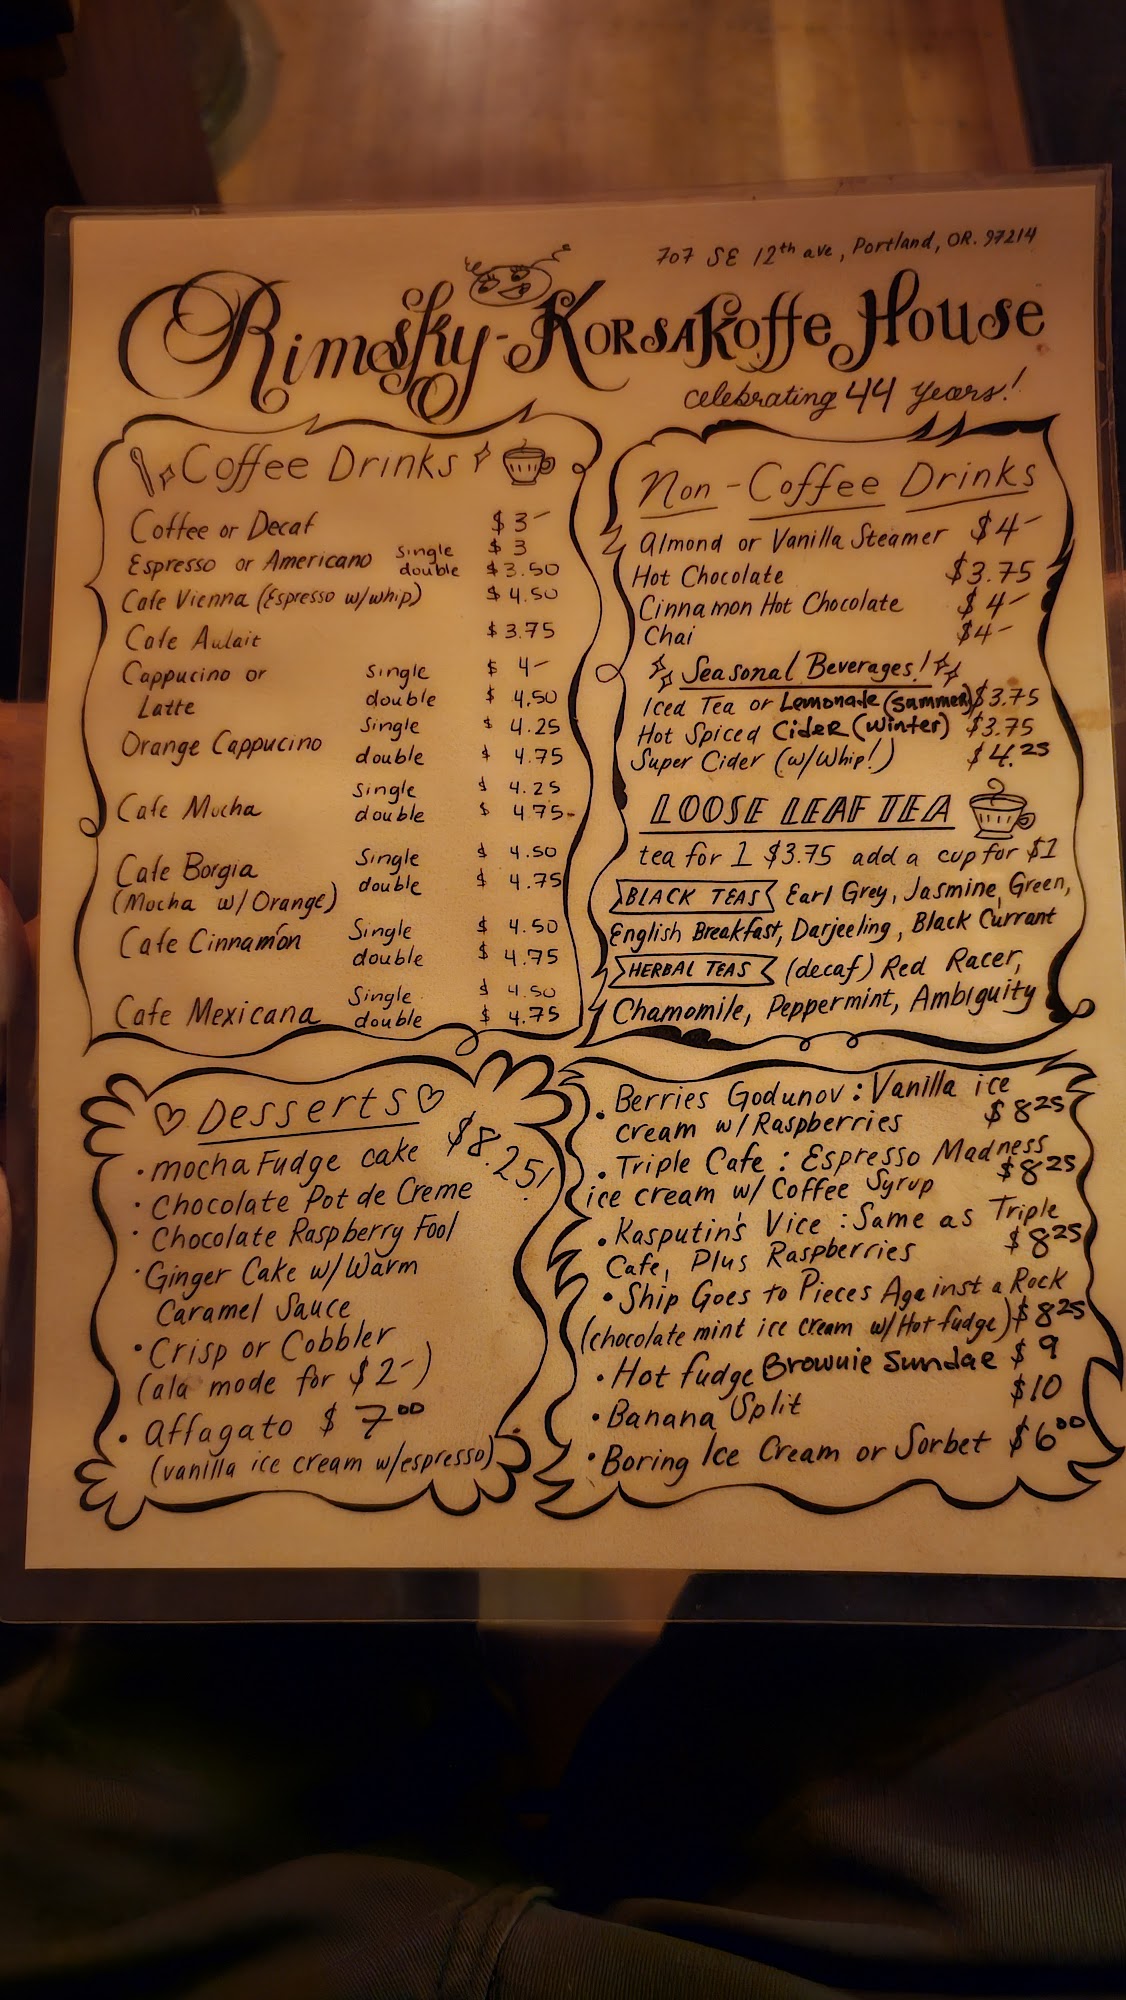 707 SE 12th ave, Portland, OR. 97214
Rimsky-Korsakoffe House
celebrating 44 years!
Coffee Drinks
Coffee or Decaf $3-
Espresso or Americano single $3
double $3.50
Cafe Vienna (Espresso w/whip) $4.50
Cafe Aulait $3.75
Cappucino or single $4-
Latte double $4.50
Orange Cappucino single $4.25
double $4.75
Cafe Mocha single $4.25
double $4.75-
Cafe Borgia single $4.50
(Mocha w/ Orange) double $4.75
Cafe Cinnamon Single $4.50
double $4.75
Cafe Mexicana Single $4.50
double $4.75
Non-Coffee Drinks
Almond or Vanilla Steamer $4-
Hot Chocolate $3.75
Cinnamon Hot Chocolate $4-
Chai $4-
Seasonal Beverages!
Iced Tea or Lemonade (summer) $3.75
Hot Spiced Cider (winter) $3.75
Super Cider (w/Whip!) $4.25
LOOSE LEAF TEA
tea for 1 $3.75 add a cup for $1
BLACK TEAS Earl Grey, Jasmine, Green,
English Breakfast, Darjeeling, Black Currant
HERBAL TEAS (decaf) Red Racer,
Chamomile, Peppermint, Ambiguity
Desserts
• mocha Fudge cake $8.25!
• Chocolate Pot de Creme
• Chocolate Raspberry Fool
• Ginger Cake w/ Warm
Caramel Sauce
• Crisp or Cobbler
(ala mode for $2-)
• Affagato $7.00
(vanilla ice cream w/espresso)
• Berries Godunov: Vanilla ice
cream w/Raspberries $8.25
• Triple Cafe: Espresso Madness
ice cream w/ Coffee Syrup $8.25
• Kasputin's Vice: Same as Triple
Cafe, Plus Raspberries $8.25
• Ship Goes to Pieces Against a Rock
(chocolate mint ice cream w/Hot fudge) $8.25
• Hot fudge Brownie Sundae $9
• Banana Split $10
• Boring Ice Cream or Sorbet $6.00